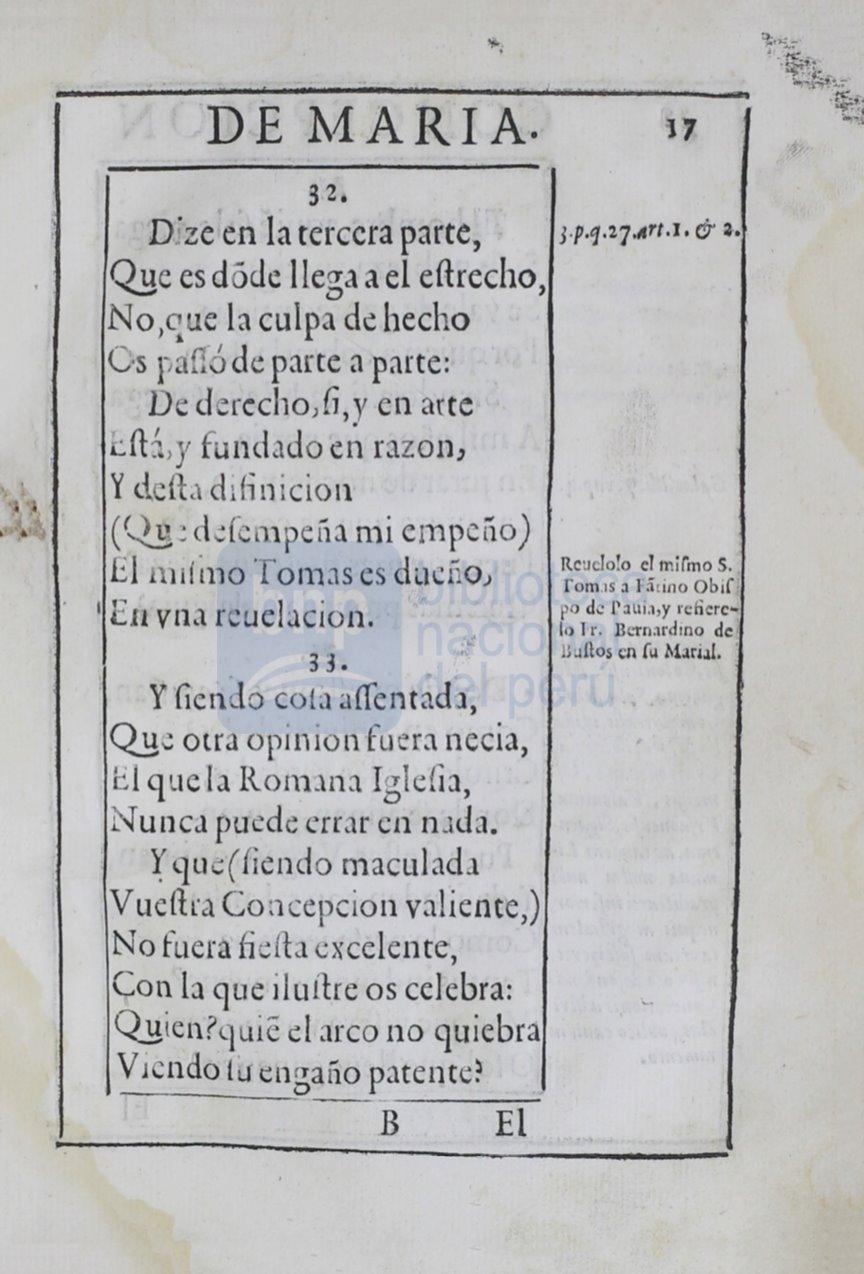 DE MARIA. 17
32.
Dize en la tercera parte,
Que es dõde llega a el eſtrecho,
No, que la culpa de hecho
Os paſsó de parte a parte:
De derecho, ſi, y en arte
Eſtá, y fundado en razon,
Y deſta difinicion
(Que deſempeña mi empeño)
El miſmo Tomas es dueño,
En vna reuelacion.
33.
Y ſiendo coſa aſſentada,
Que otra opinion fuera necia,
El que la Romana Igleſia,
Nunca puede errar en nada.
Y que (ſiendo maculada
Vueſtra Concepcion valiente,)
No fuera fieſta excelente,
Con la que iluſtre os celebra:
Quien? quiẽ el arco no quiebra
Viendo ſu engaño patente?
B El
3.p.q.27.art.1. & 2.
Reuelolo el miſmo S.
Tomas a Obiſ
po de Pauia, y refiere-
lo Fr. Bernardino de
Buſtos en ſu Marial.
bnp biblioteca
nacional
del perú